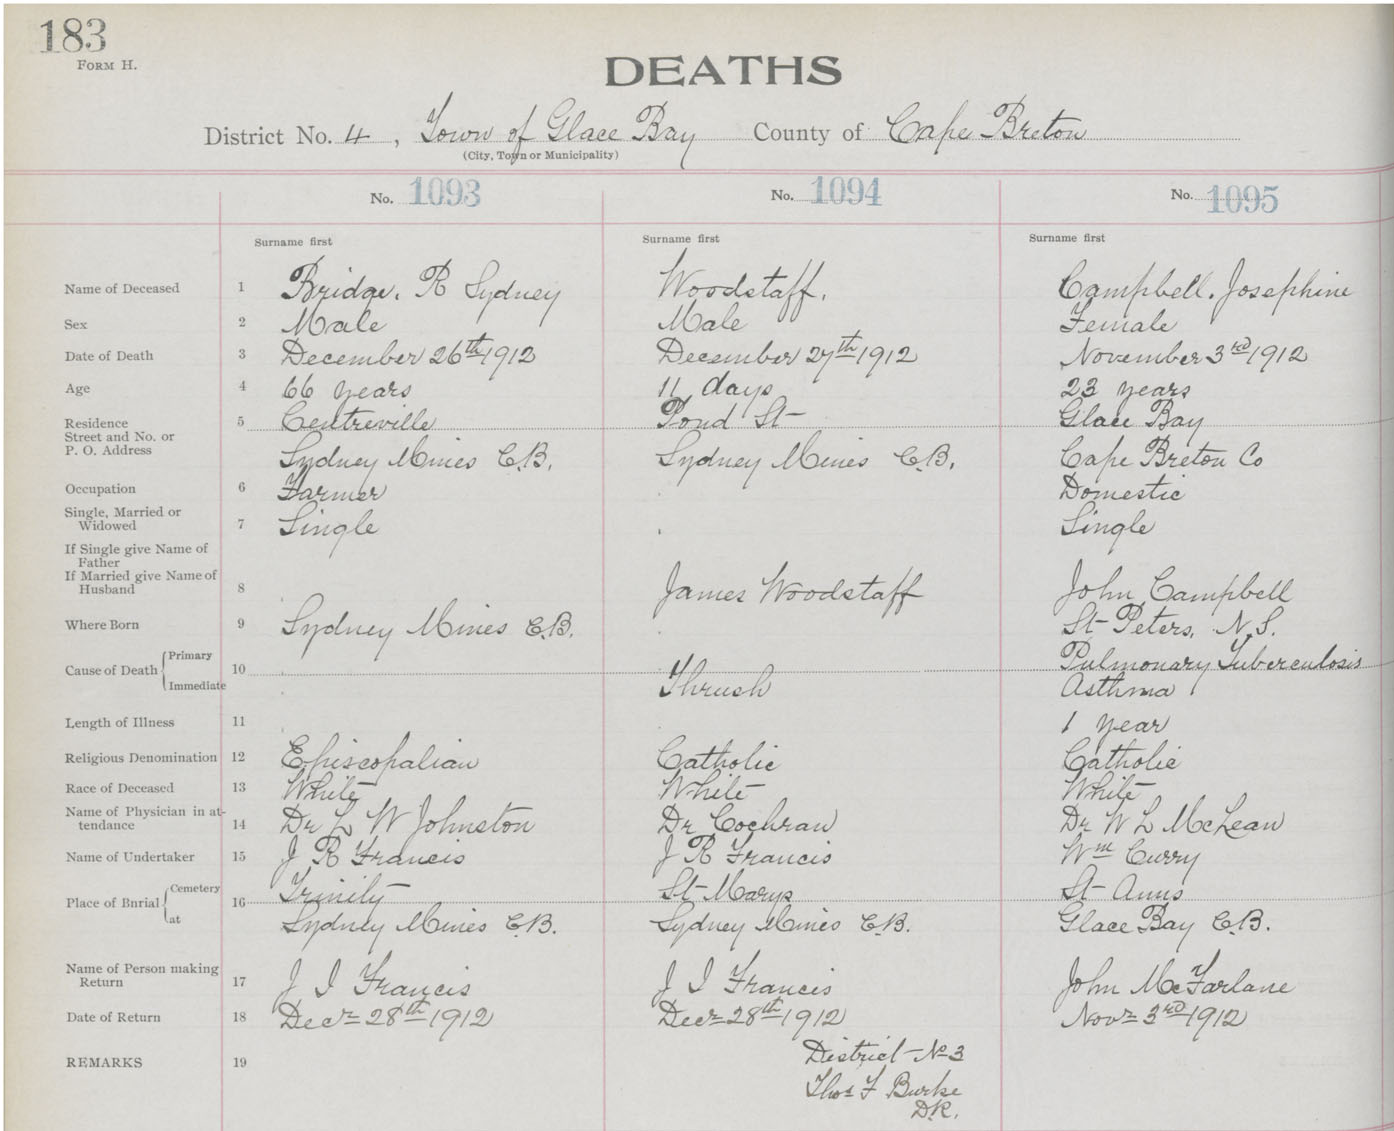 183
FORM H.
DEATHS
District No. 4, Town of Glace Bay County of Cape Breton
(City, Town or Municipality)
No. 1093 No. 1094 No. 1095
Surname first Surname first Surname first
Name of Deceased 1 Bridge. R Sydney Woodstaff. Campbell. Josephine
Sex 2 Male Male Female
Date of Death 3 December 26th 1912 December 27th 1912 November 3rd 1912
Age 4 66 years 11 days 23 years
Residence 5 Centreville Pond St Glace Bay
Street and No. or
P. O. Address Sydney Mines C.B. Sydney Mines C.B. Cape Breton Co
Occupation 6 Farmer Domestic
Single, Married or
Widowed 7 Single Single
If Single give Name of
Father
If Married give Name of
Husband 8 James Woodstaff John Campbell
Where Born 9 Sydney Mines C.B. St Peters, N.S.
Cause of Death Primary 10 Pulmonary Tuberculosis
Immediate Thrush Asthma
Length of Illness 11 1 year
Religious Denomination 12 Episcopalian Catholic Catholic
Race of Deceased 13 White White White
Name of Physician in at-
tendance 14 Dr L W Johnston Dr Cochran Dr W L McLean
Name of Undertaker 15 J R Francis J R Francis Wm Curry
Place of Bnrial Cemetery 16 Trinity St Marys St Anns
at Sydney Mines C.B. Sydney Mines C.B. Glace Bay C.B.
Name of Person making
Return 17 J I Francis J I Francis John McFarlane
Date of Return 18 Decr 28th 1912 Decr 28th 1912 Novr 3rd 1912
REMARKS 19 District No 3
Thos F Burke
D.R.